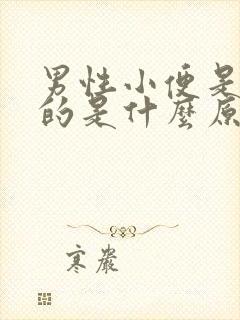 男性小便是
的是什麼原
寒巖